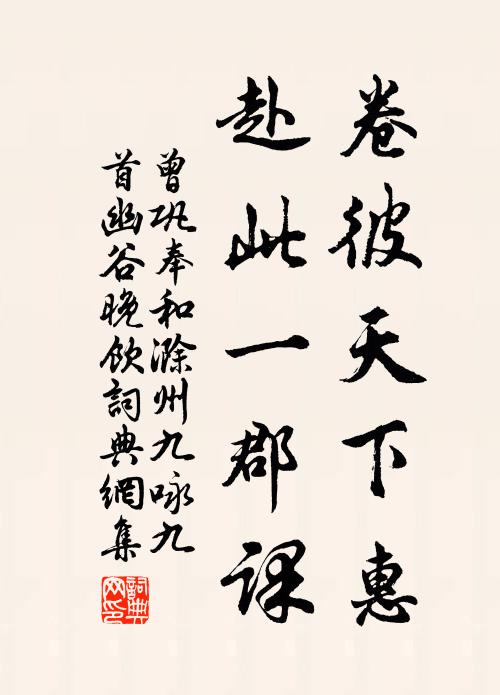 卷彼天下惠
赴此一郡課
曾巩奉和滁州九咏九
首幽谷晚飲詞典網集
詞典網印